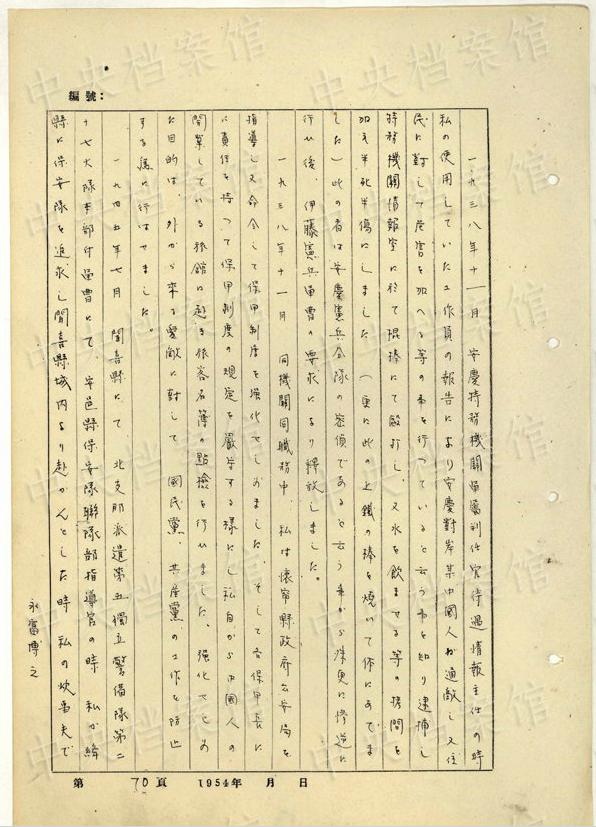 編號：
一九三八年十一月　安慶特務機關囑託判任官待遇情報主任の時
私の使用していた工作員の報告により安慶對岸某中國人が通敵し又住
民に對して危害を加へる等の事を行っていると云う事を知り逮捕し
特務機關情報室に於て棍棒にて毆打し、又水を飲ませる等の拷問を
加え半死半傷にしました（更に此の上鐵の棒を燒いて体にあてま
した）此の者は安慶憲兵分隊の密偵であると云う事から殊更に慘逆に
行い後、伊藤憲兵軍曹の要求により釋放しました。
一九三八年十一月　同機關同職務中　私は懷寧縣政府公安局を
指導し又命令して保甲制度を強化せしめました、そして各保甲長に
責任を持って保甲制度の規定を嚴守する樣にし私自から中國人の
開業している旅館に赴き旅客名簿の點檢を行いました、強化せしめ
た目的は、外から來る愛敵に對して　國民黨、共產黨の工作を防止
する為に行はせました。
一九四五年七月　聞喜縣にて　北支那派遣第五獨立警備隊第二
十七大隊本部付軍曹にて、安邑縣保安隊聯隊部指導官の時　私が絳
縣に保安隊を追求し聞喜縣城内より赴かんとした時　私の炊事夫で
永富博之
第　70　頁　1954年　月　日
中央档案馆